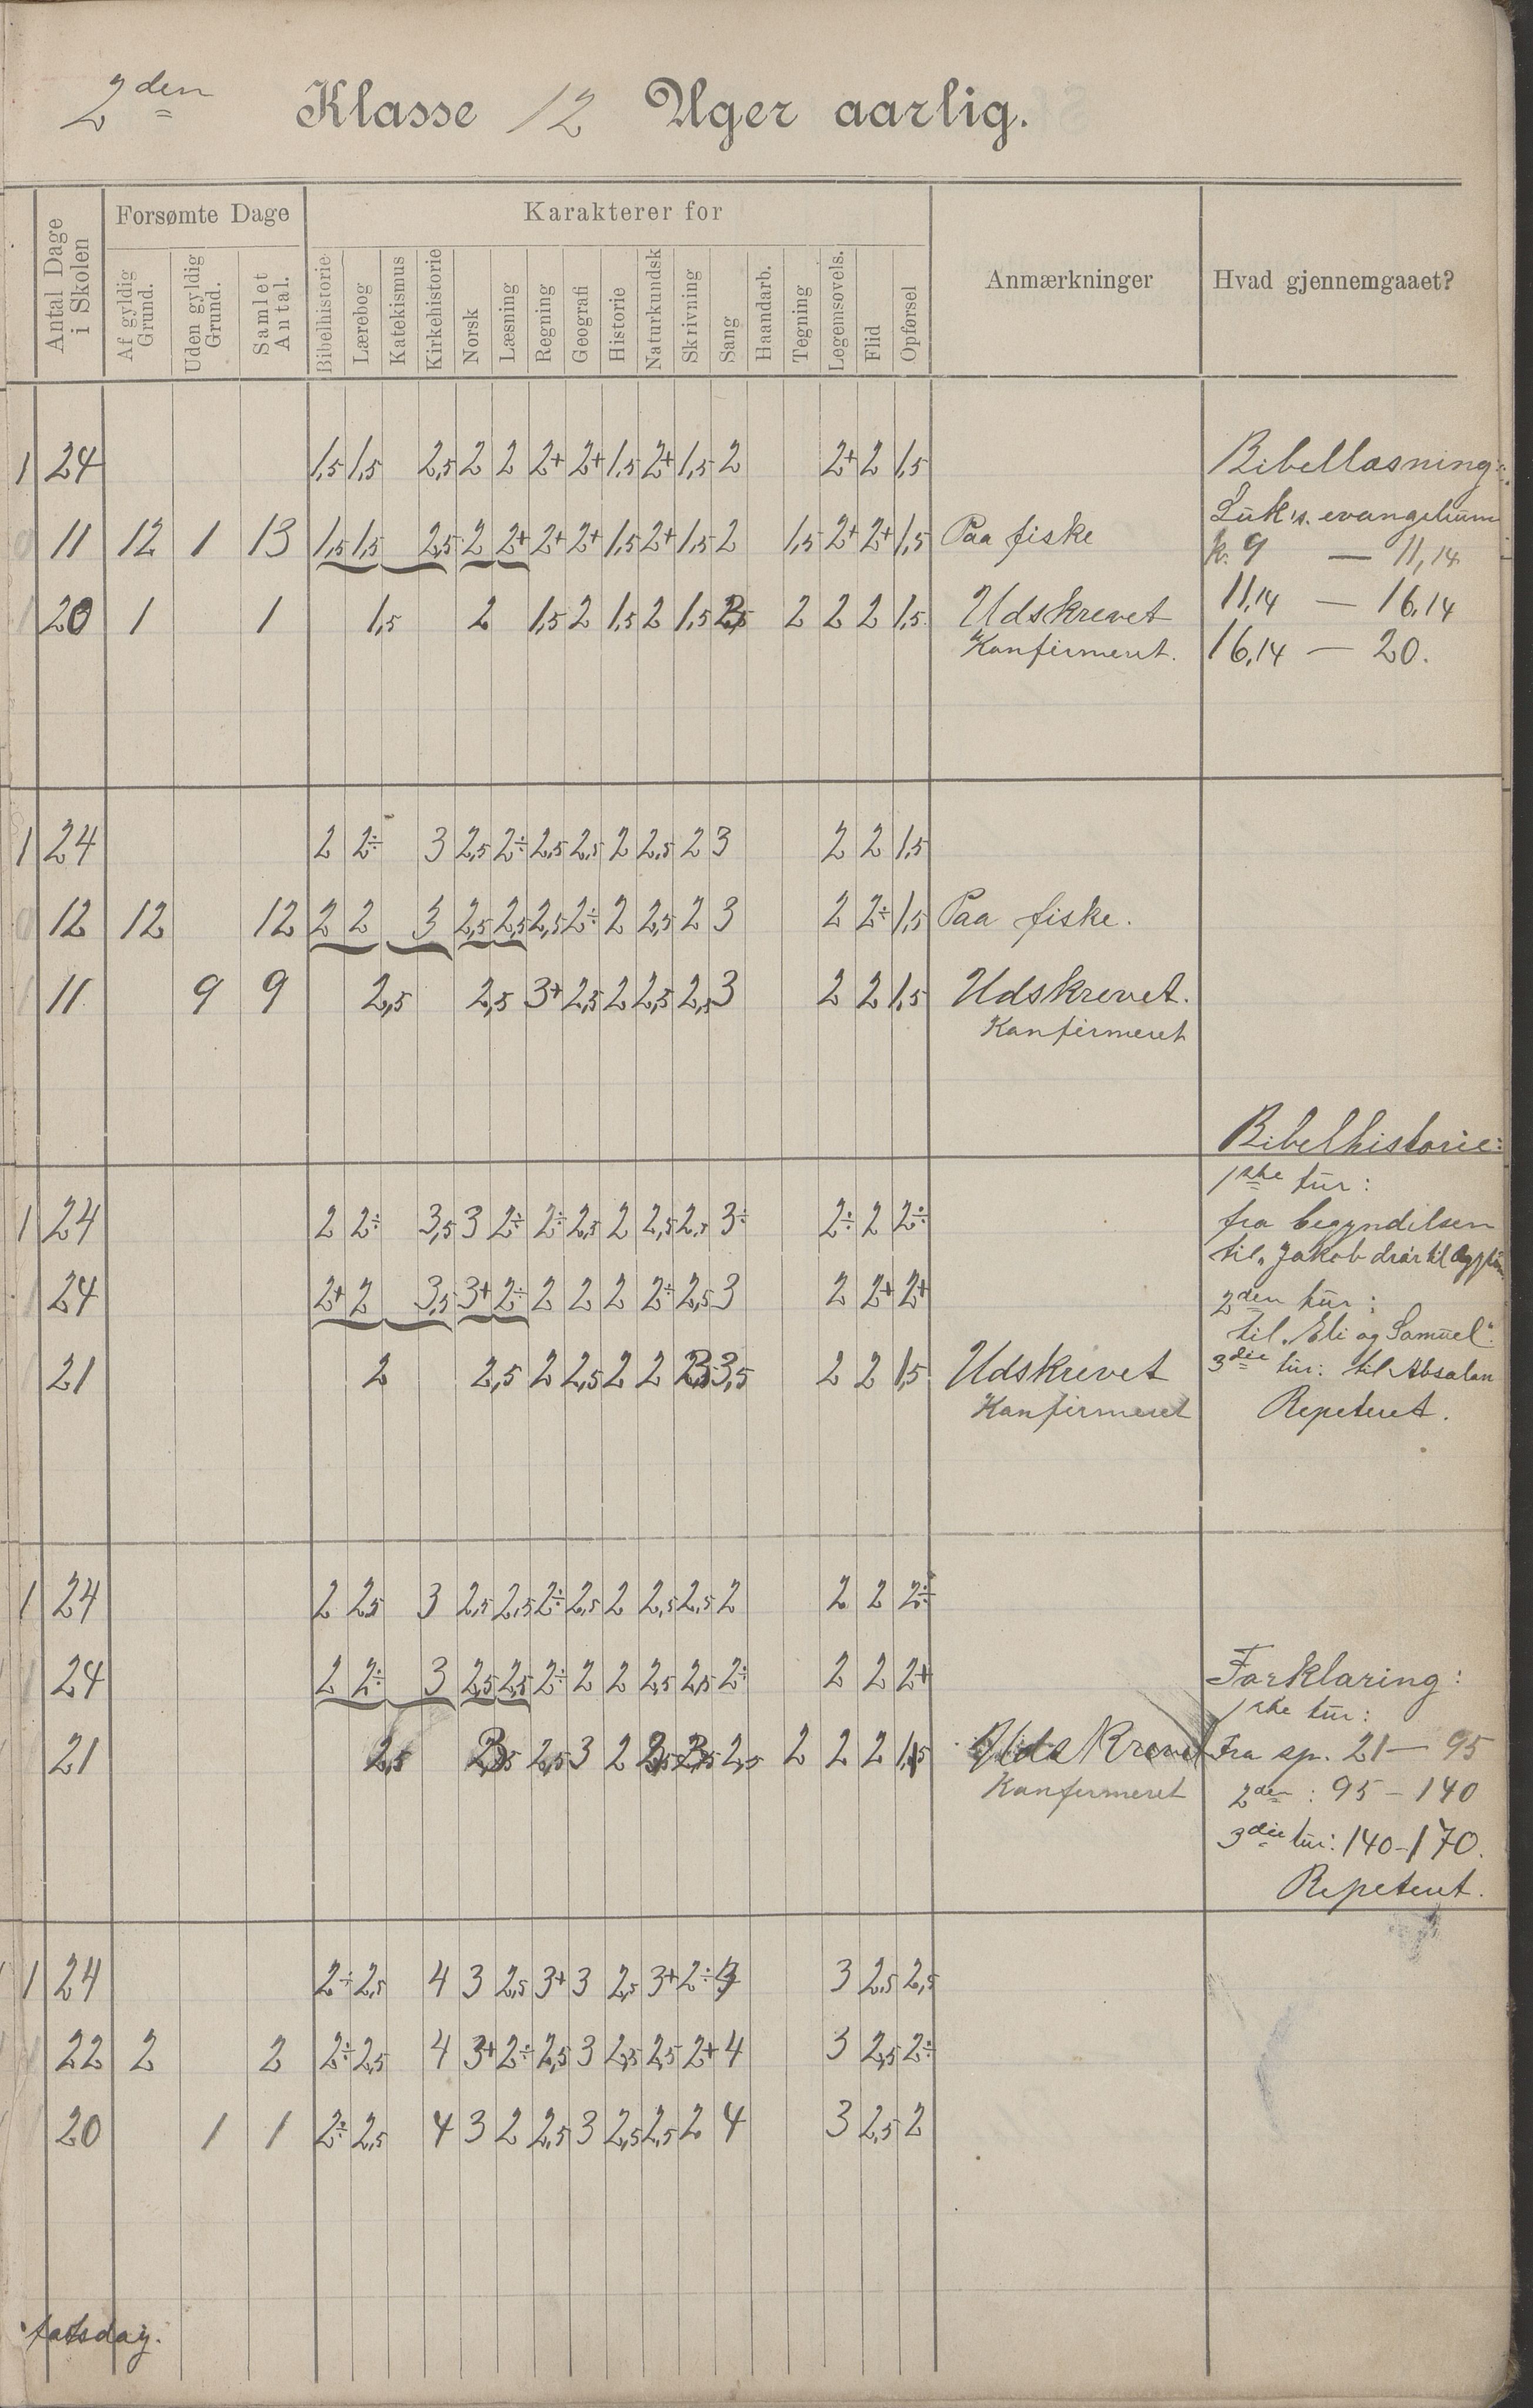 2den Klasse 12 Uger aarlig.
Antal Dage i Skolen
Forsømte Dage
Af gyldig Grund.
Uden gyldig Grund.
Samlet Antal.
Karakterer for
Bibelhistorie
Lærebog
Katekismus
Kirkehistorie
Norsk
Læsning
Regning
Geografi
Historie
Naturkundsk
Skrivning
Sang
Haandarb.
Tegning
Legemsøvels.
Flid
Opførsel
Anmærkninger
Hvad gjennemgaaet?
1 24 1,5 1,5 2,5 2 2 2+ 2+ 1,5 2+ 1,5 2 2+ 2 1,5 Bibellæsning:
Luk's. evangelium
11 12 1 13 1,5 1,5 2,5 2 2+ 2+ 2+ 1,5 2+ 1,5 2 1,5 2+ 2+ 1,5 Paa fiske k. 9 — 11,14
20 1 1 1,5 2 1,5 2 1,5 2 1,5 2 2 2 1,5 Udskrevet 11,14 — 16,14
Konfirmert. 16,14 — 20.
1 24 2 2÷ 3 2,5 2÷ 2,5 2,5 2 2,5 2 3 2 2 1,5
12 12 12 2 2 3 2,5 2,5 2,5 2÷ 2 2,5 2 3 2 2÷ 1,5 Paa fiske.
11 9 9 2,5 2,5 3+ 2,5 2 2,5 2,5 3 2 2 1,5 Udskrevet.
Konfirmeret
Bibelhistorie:
1ste tur:
1 24 2 2÷ 3,5 3 2÷ 2÷ 2,5 2 2,5 2,5 3÷ 2÷ 2 2÷ fra begyndelsen
til „Jakob drar til Ægypten
24 2+ 2 3,5 3+ 2÷ 2 2 2 2÷ 2,5 3 2 2+ 2+ 2den tur:
til „Eli og Samuel".
21 2 2,5 2 2,5 2 2 3,5 2 2 1,5 Udskrevet 3die tur: til Absalon
Konfirmeret Repeteret.
1 24 2 2,5 3 2,5 2,5 2÷ 2,5 2 2,5 2,5 2 2 2 2÷
24 2 2÷ 3 2,5 2,5 2÷ 2 2 2,5 2,5 2÷ 2 2 2+ Forklaring:
1ste tur:
21 2,5 2,5 3 2 2,5 2 2 2 1,5 Udskrevet Fra sp. 21 — 95
Konfirmeret 2den : 95 — 140
3die tur: 140-170.
Repetert.
1 24 2÷ 2,5 4 3 2,5 3+ 3 2,5 3+ 2÷ 3 2,5 2,5
22 2 2 2÷ 2,5 4 3+ 2÷ 2,5 3 2,5 2,5 2+ 4 3 2,5 2÷
20 1 1 2÷ 2,5 4 3 2 2,5 3 2,5 2,5 2 4 3 2,5 2